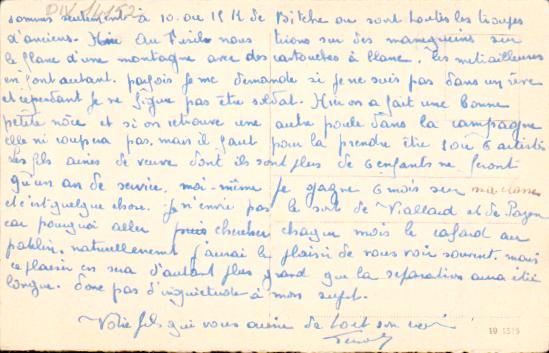 DIV 11/152
sommes seulement à 10 ou 15 K de Bitche ou sont toutes les troupes
d'anciens. Hier au fusil nous tirions sur des mannequins sur
le flanc d'une montagne avec des cartouches à blanc. les mitrailleuses
en font autant. parfois je me demande si je ne suis pas dans un rêve
et cependant je ne figue pas être soldat. Hier on a fait une bonne
petite noce et si on retrouve une autre poule dans la campagne
elle ni coupera pas, mais il faut pour la prendre être 10 ou 6 artistes
Les fils ainés de veuve dont ils sont plus de 6 enfants ne feront
qu'un an de service. moi-même je gagne 6 mois sur ma classe
et c'est quelque chose. je n'envie pas le sort de Viallard et de Payen
car pourquoi aller puis chercher chaque mois le cafard au
patelin. naturellement j'aurai le plaisir de vous voir souvent. mais
ce plaisir en sera d'autant plus grand que la séparation aura été
longue. donc pas d'inquiétude à mon sujet.
Votre fils qui vous aime de tout son cœur
19 1515